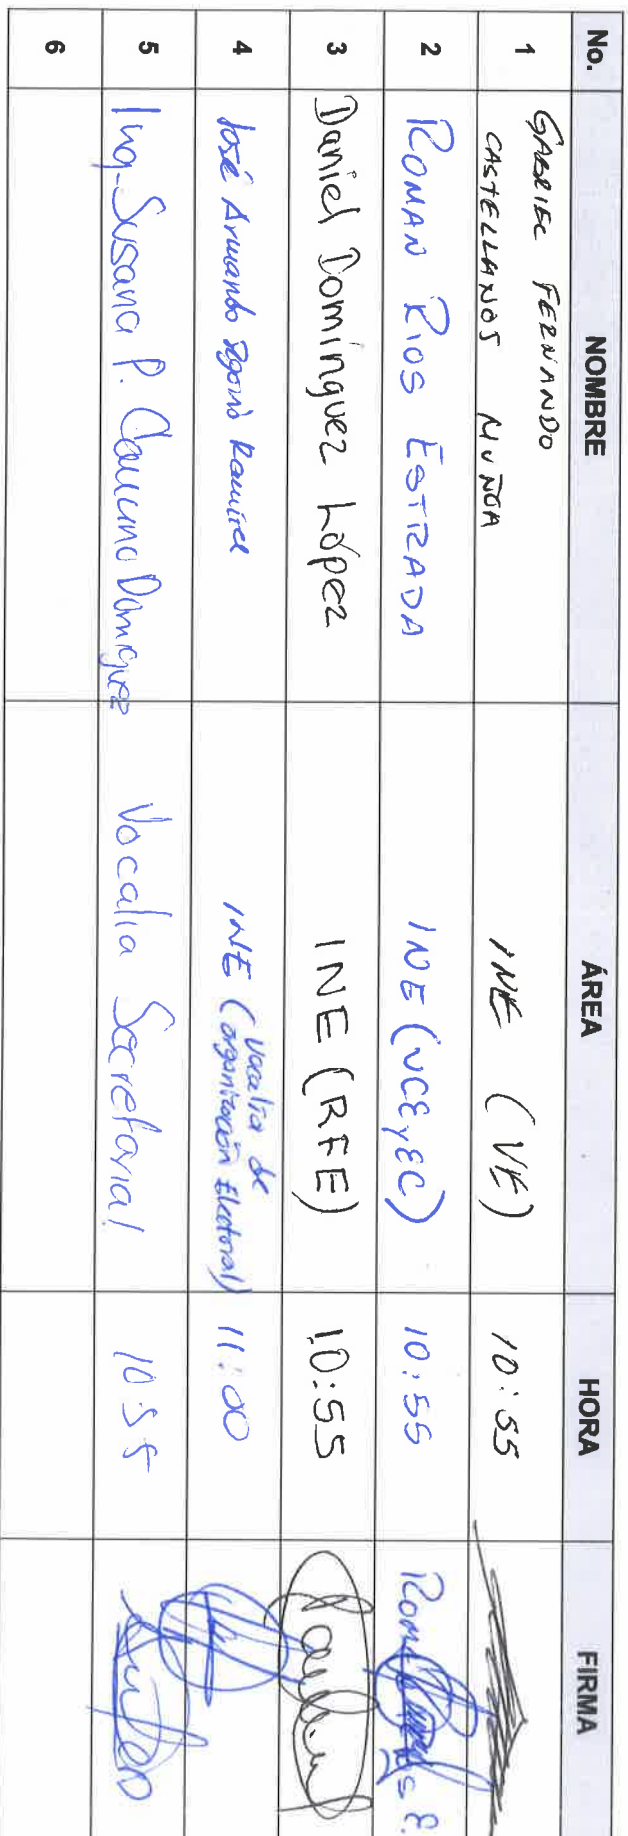 No. NOMBRE ÁREA HORA FIRMA
1 GABRIEL FERNANDO
CASTELLANOS MUÑOA INE (VE) 10:55
2 ROMAN RIOS ESTRADA INE (VCEyEC) 10:55
3 Daniel Domínguez López INE (RFE) 10:55
4 José Armando Ramírez INE (Vocalía de
organización Electoral) 11:00
5 Ing. Susana P. Domínguez Vocalía Secretarial 10:55
6